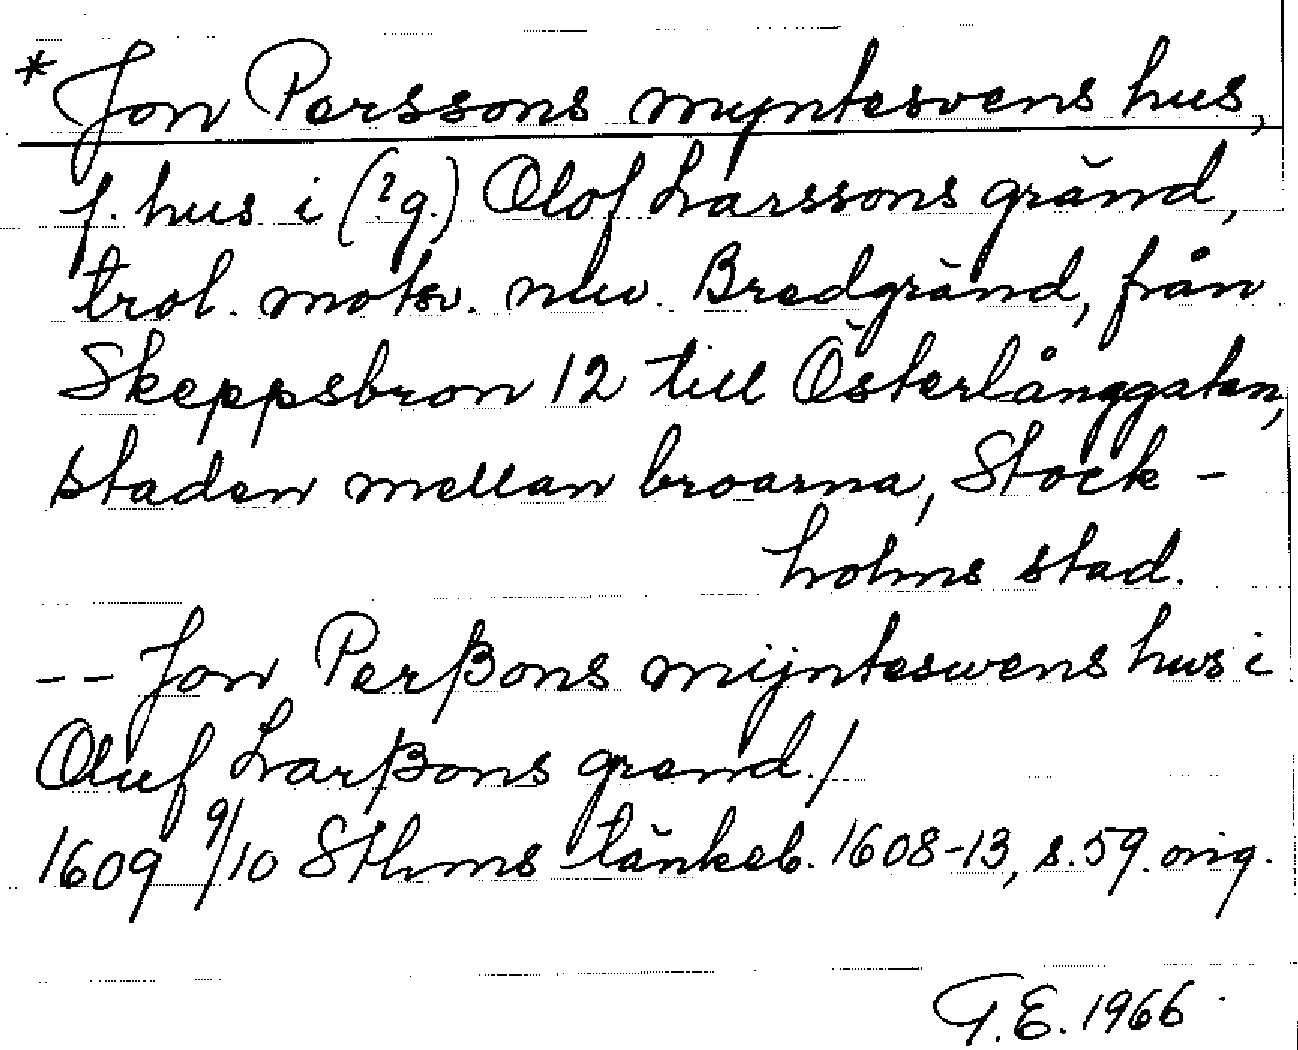 * Jon Perssons myntesvens hus,
f. hus i (?g.) Olof Larssons gränd,
trol. motsv. nuv. Bredgränd, från
Skeppsbron 12 till Österlånggatan,
staden mellan broarna, Stock-
holms stad.
-- Jon Perßons mijnteswens hws i
Oluf Larßons grend./
1609 9/10 Sthms tänkeb. 1608-13, s. 59. orig.
G.E. 1966